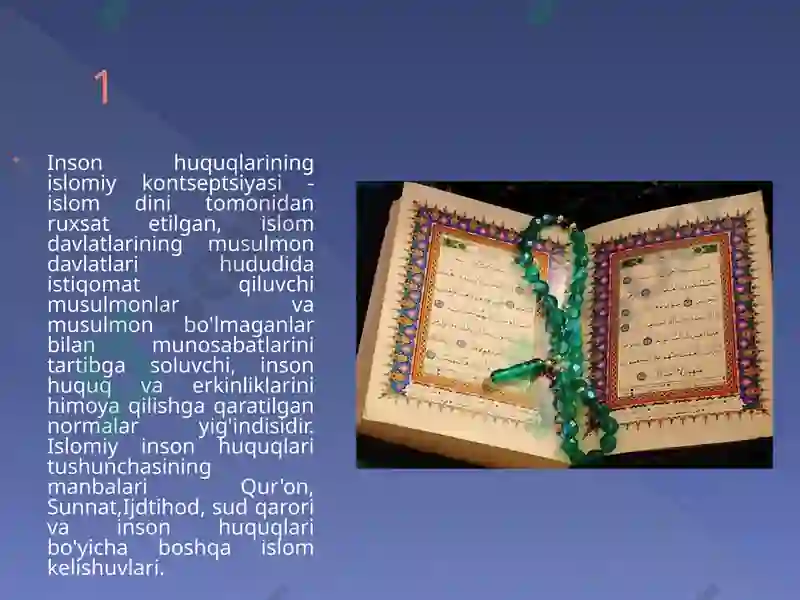 1
Inson huquqlarining
islomiy kontseptsiyasi -
islom dini tomonidan
ruxsat etilgan, islom
davlatlarining musulmon
davlatlari hududida
istiqomat qiluvchi
musulmonlar va
musulmon bo'lmaganlar
bilan munosabatlarini
tartibga soluvchi, inson
huquq va erkinliklarini
himoya qilishga qaratilgan
normalar yig'indisidir.
Islomiy inson huquqlari
tushunchasining
manbalari Qur'on,
Sunnat,Ijdtihod, sud qarori
va inson huquqlari
bo'yicha boshqa islom
kelishuvlari.